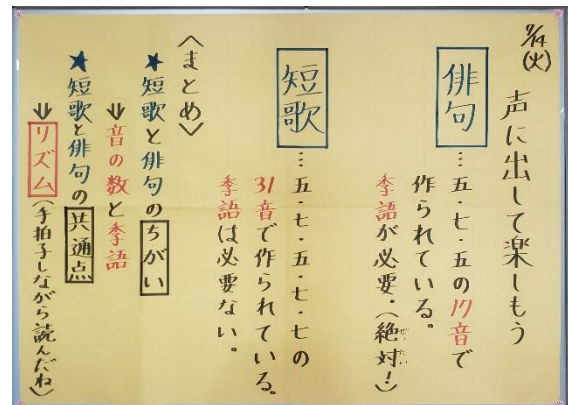 7/14(火)
声に出して楽しもう
俳句…五・七・五の17音で
作られている。
季語が必要。(絶対!)
ぜったい
短歌…五・七・五・七・七の
31音で作られている。
季語は必要ない。
〈まとめ〉
★短歌と俳句のちがい
⇓音の数と季語
★短歌と俳句の共通点
⇓リズム(手拍子しながら読んだね)